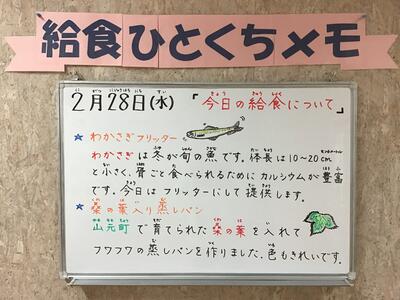 給食ひとくちメモ
2月28日(水) 「今日の給食について」
★ わかさぎフリッター
わかさぎは冬が旬の魚です。体長は10〜20cm
と小さく、骨ごと食べられるためにカルシウムが豊富
です。今日はフリッターにして提供します。
★ 桑の葉入り蒸しパン
山元町で育てられた桑の葉を入れて
フワフワの蒸しパンを作りました。色もきれいです。